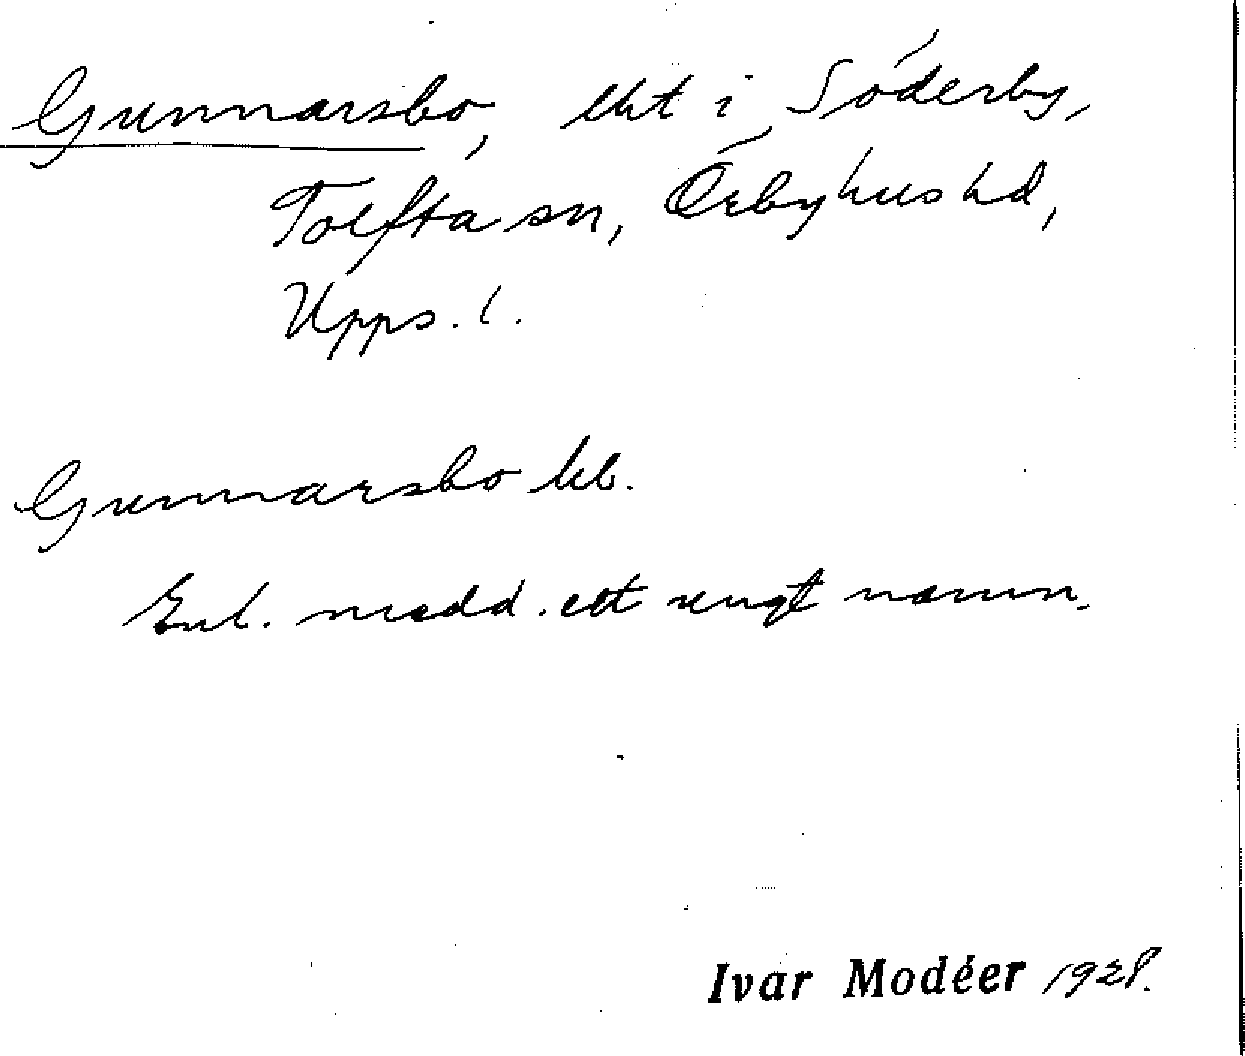 Gunnarsbo, lht i Söderby,
Tolfta sn, Örbyhus hd,
Upps. l.
Gunnarsbo kb.
Enl. medd. ett ungt namn.
Ivar Modéer 1928.